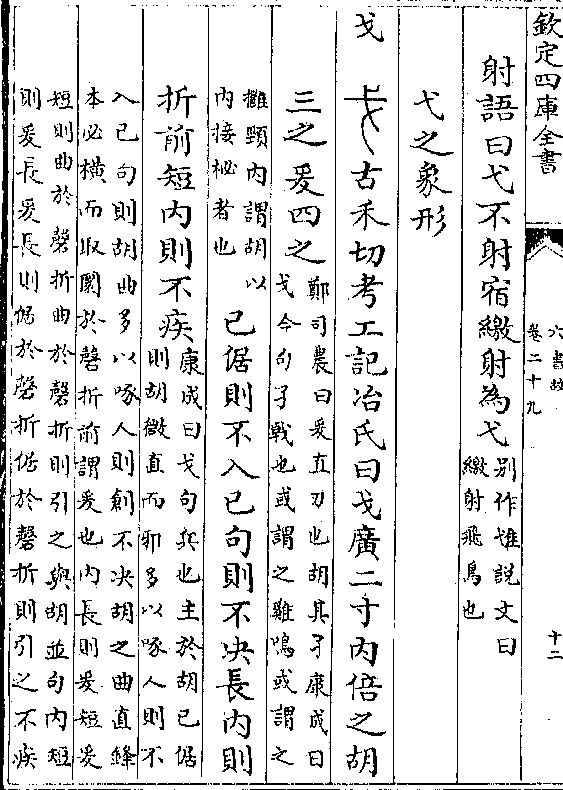 欽定四庫全書
六書故
卷二十九
十二
射語曰弋不射宿繳射為弋
别作䧹説文曰
繳射飛鳥也
弋之象形
戈
古禾切考工記冶氏曰戈廣二寸内倍之胡
三之援四之
鄭司農曰援直刃也胡其孑康成曰
戈今句孑㦸也或謂之雞鳴或謂之
擁頸内謂胡以
内接柲者也
已倨則不入已句則不決長内則
折前短内則不疾
康成曰戈句兵也主於胡已倨
則胡微直而邪多以啄人則不
入已句則胡曲多以啄人則創不决胡之曲直鋒
本必横而取圜於磬折前謂援也内長則援短援
短則曲於磬折曲於磬折則引之與胡並句内短
則援長援長則倨於磬折倨於磬折則引之不疾